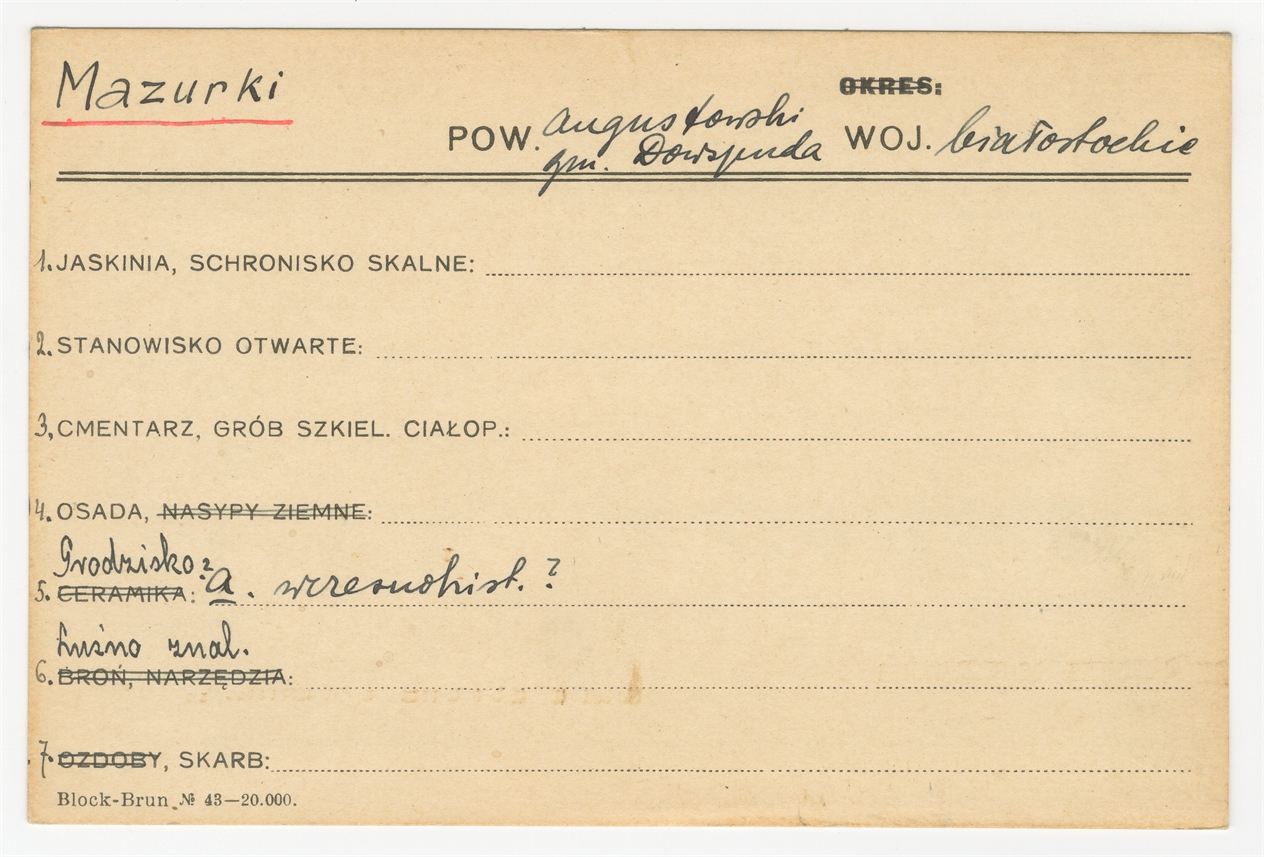 Mazurki
OKRES:
POW. augustowski WOJ. białostockie
gm. Dowspuda
1. JASKINIA, SCHRONISKO SKALNE:
2. STANOWISKO OTWARTE:
3, CMENTARZ, GRÓB SZKIEL. CIAŁOP.:
4. OSADA, NASYPY ZIEMNE:
Grodzisko?
5. CERAMIKA: a. wczesnohist. ?
Luźno znal.
6. BROŃ, NARZĘDZIA:
7. OZDOBY, SKARB:
Block-Brun № 43—20.000.